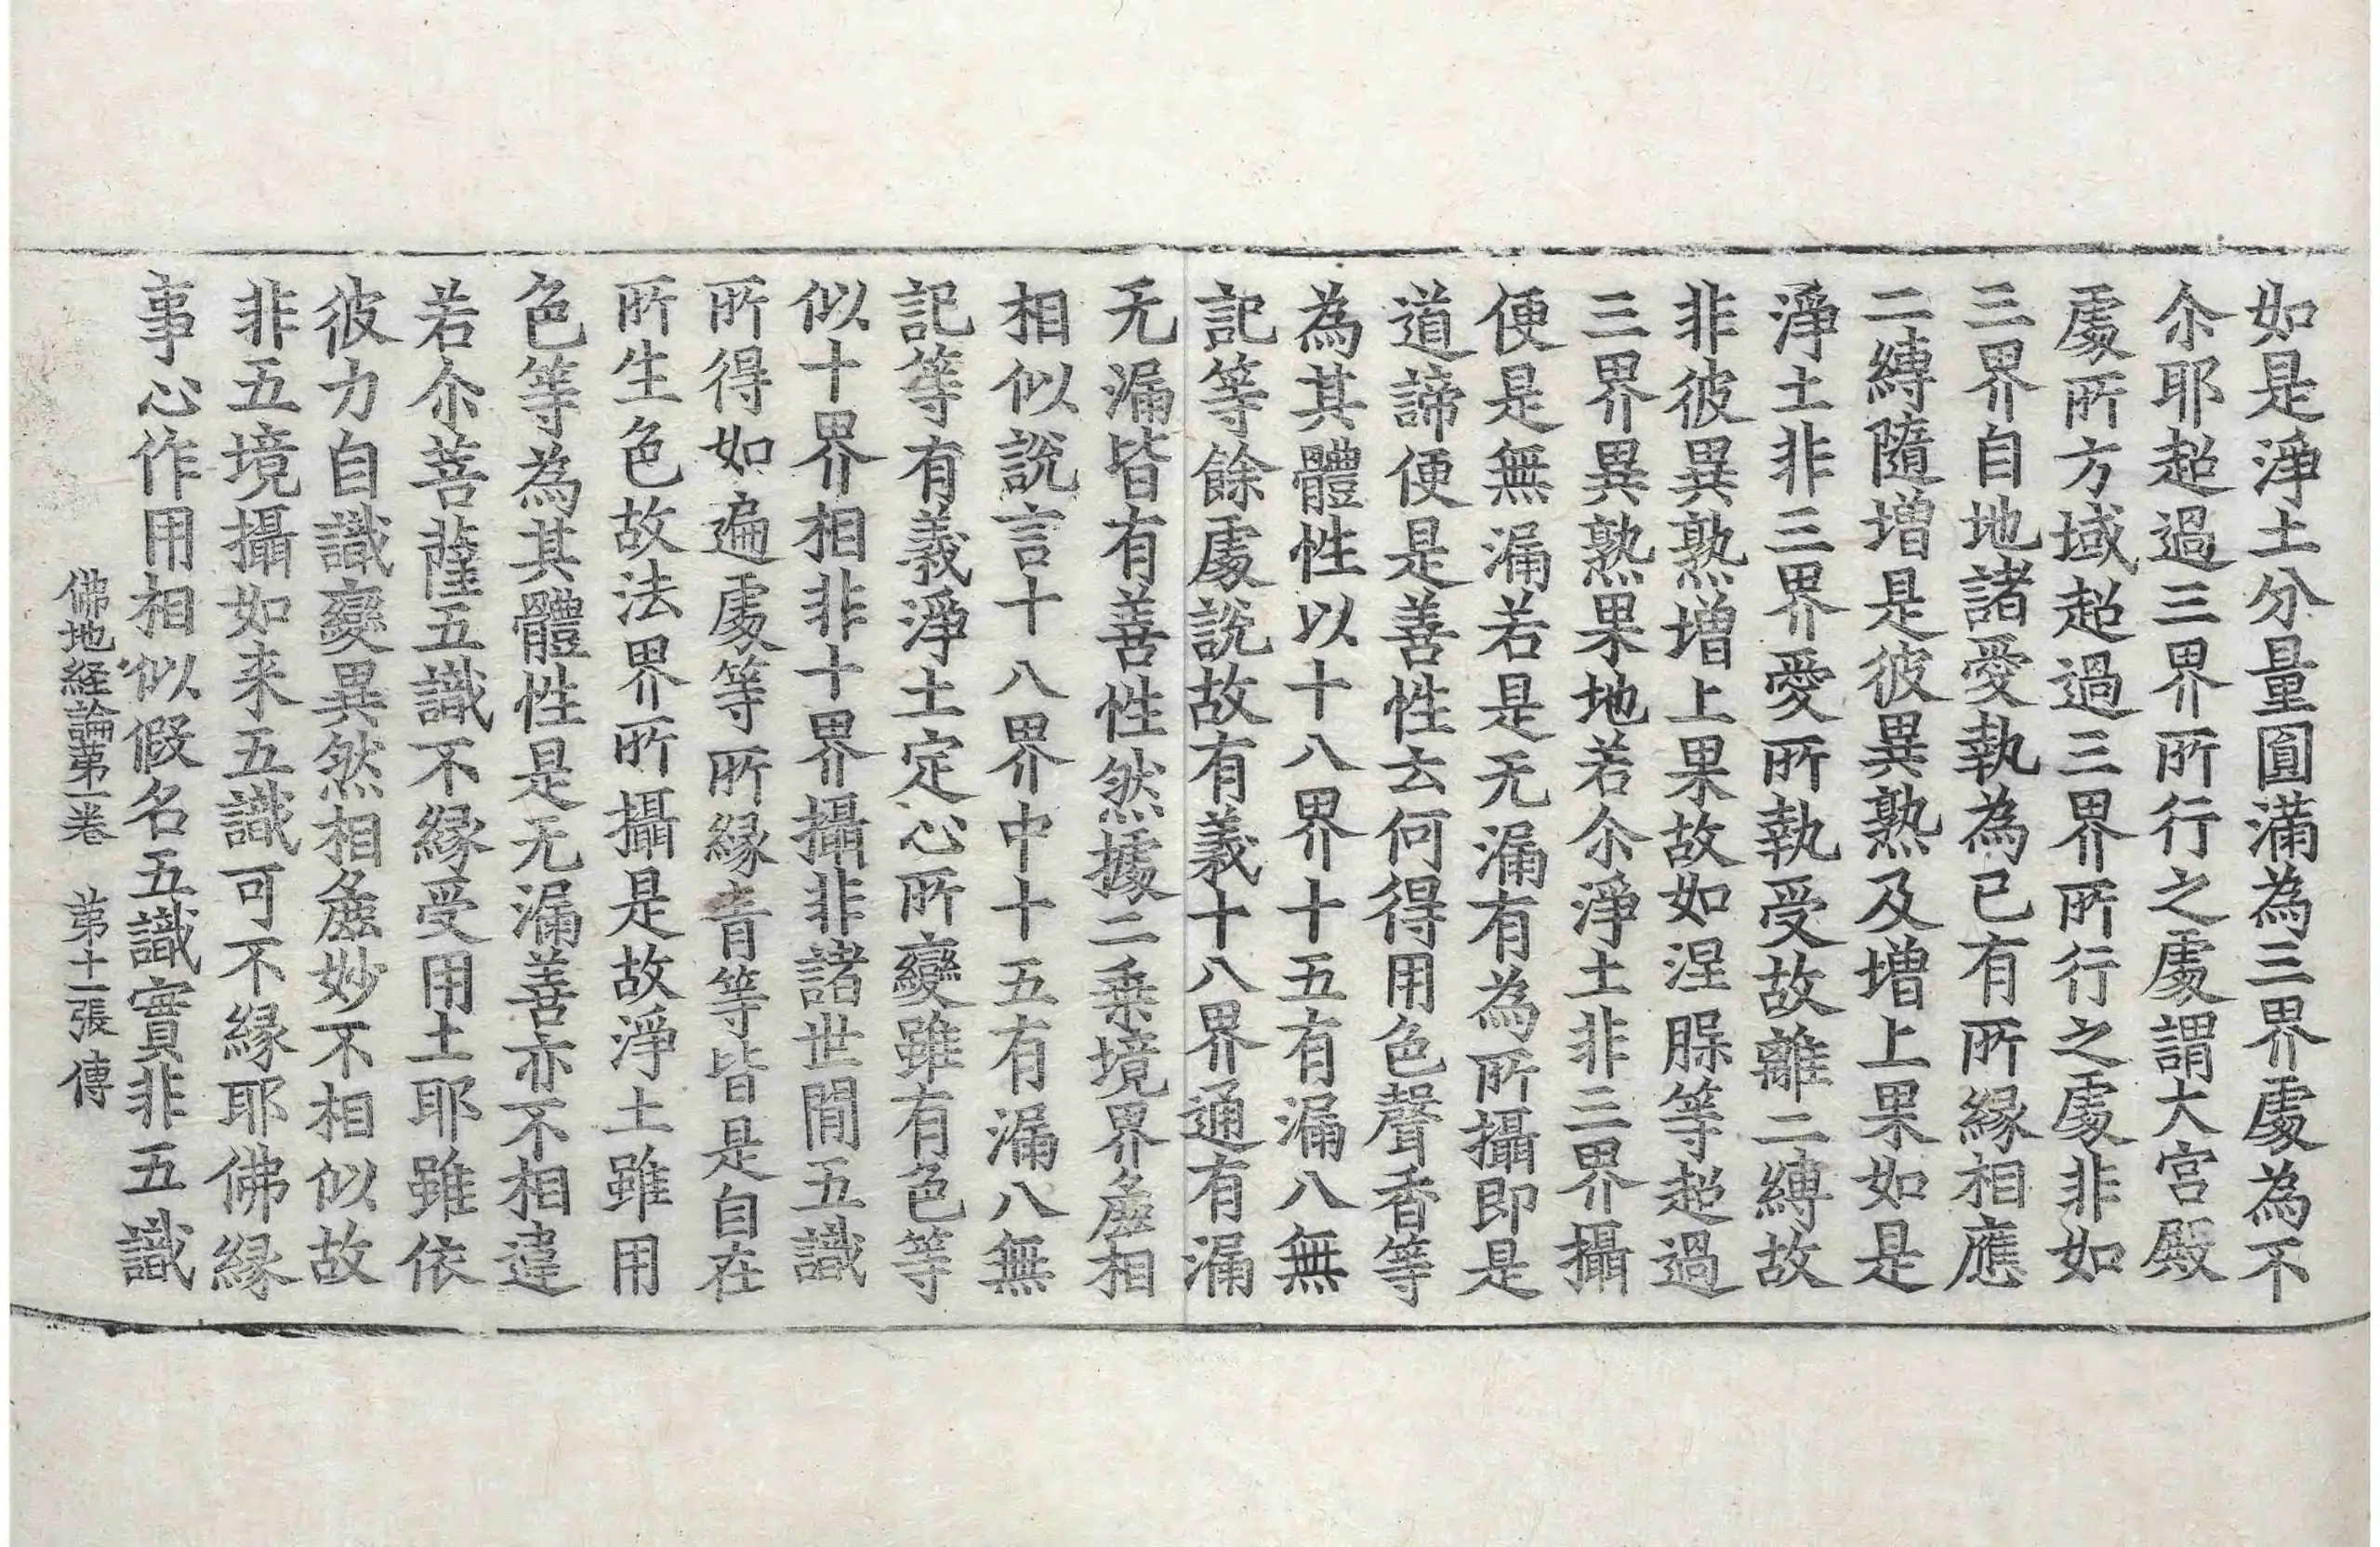 如是淨土分量圓滿為三界處為不
尒耶超過三界所行之處謂大宮殿
處所方域超過三界所行之處非如
三界自地諸愛執為已有所緣相應
二縛隨增是彼異熟及增上果如是
淨土非三界愛所執受故離二縛故
非彼異熟增上果故如涅腂等超過
三界異熟果地若尒淨土非三界攝
便是無漏若是无漏有為所攝即是
道諦便是善性云何得用色聲香等
為其體性以十八界十五有漏八無
記等餘處說故有義十八界通有漏
无漏皆有善性然據二乗境界麁相
相似說言十八界中十五有漏八無
記等有義淨土定心所變雖有色等
似十界相非十界攝非諸世間五識
所得如遍處等所緣青等皆是自在
所生色故法界所攝是故淨土雖用
色等為其體性是无漏善亦不相違
若尒菩薩五識不緣受用土耶雖依
彼力自識變異然相麁妙不相似故
非五境攝如来五識可不緣耶佛緣
事心作用相似假名五識實非五識
佛地経論第一卷　第十一張　傳